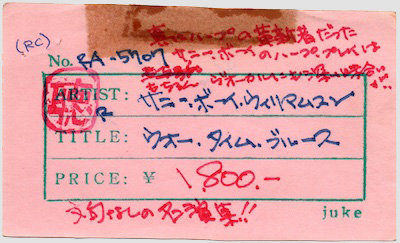 (RC)
ハープの革新者だった
No. RA-5707 サニー・ボーイのハーププレイは
聴
ARTIST: サニー・ボーイ・ウィリアムスン
TITLE: ウォー・タイム・ブルース
PRICE: ¥ 1800.-
文句なしの名演集!!
juke